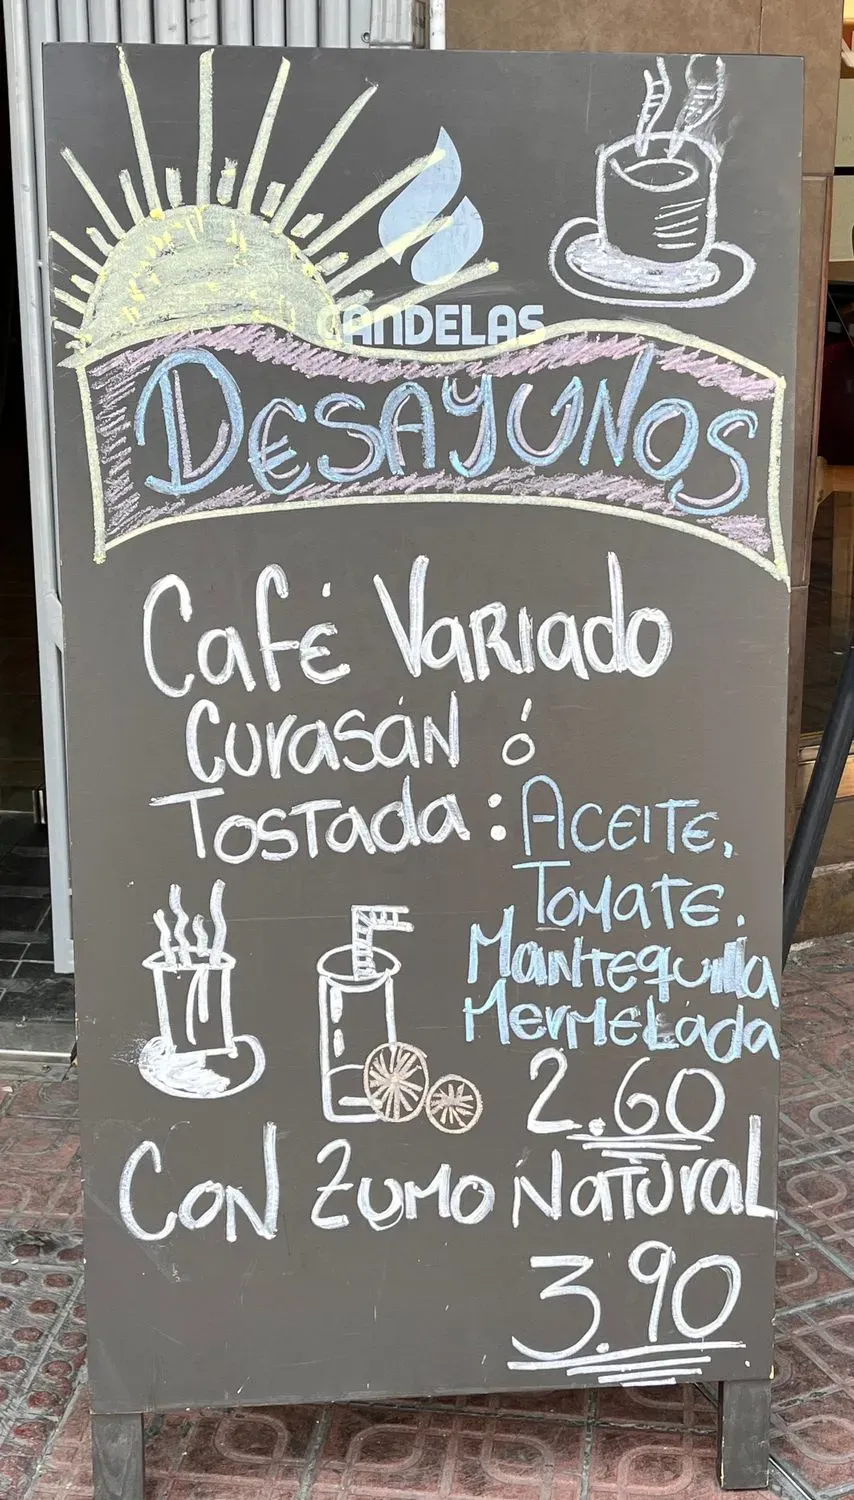 CANDELAS
DESAYUNOS
Café Variado
Curasán ó
Tostada: Aceite,
Tomate,
Mantequilla
Mermelada
2.60
Con Zumo Natural
3.90